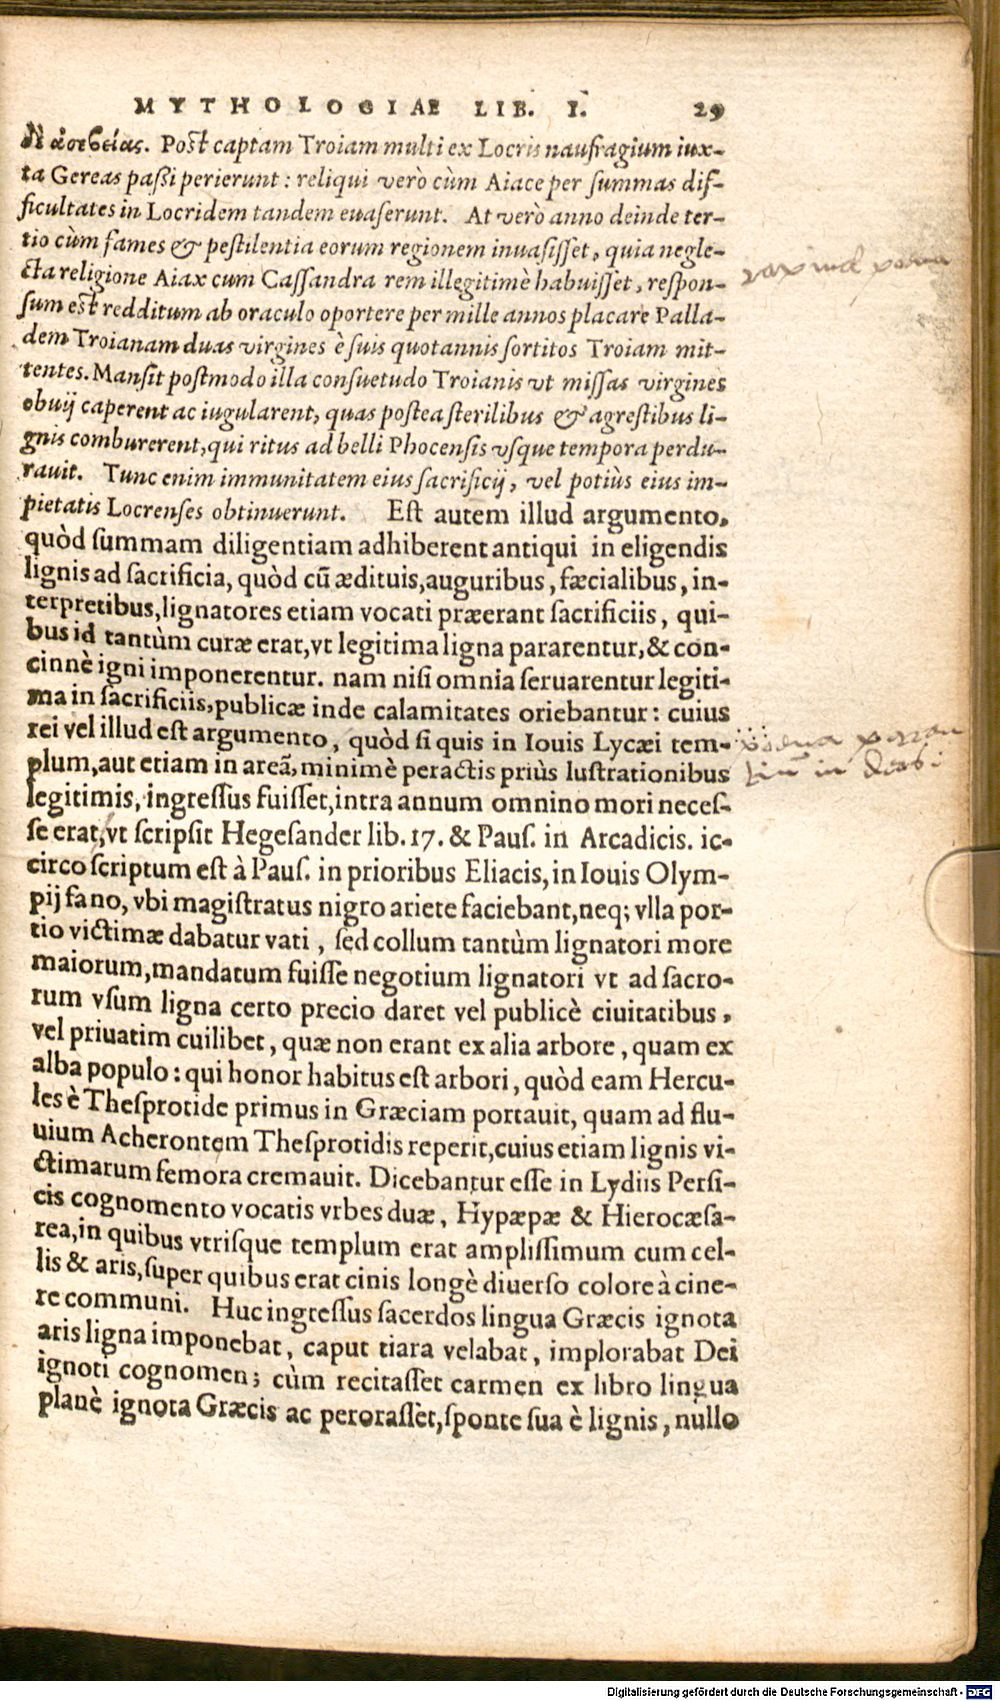 MYTHOLOGIAE LIB. I. 29
ἀσεβείας. Post captam Troiam multi ex Locris naufragium iux-
ta Gereas passi perierunt : reliqui verò cùm Aiace per summas dif-
ficultates in Locridem tandem euaserunt. At verò anno deinde ter-
tio cùm fames & pestilentia eorum regionem inuasisset, quia negle-
cta religione Aiax cum Cassandra rem illegitimè habuisset, respon-
sum est redditum ab oraculo oportere per mille annos placare Palla-
dem Troianam duas virgines è suis quotannis sortitos Troiam mit-
tentes. Mansit postmodo illa consuetudo Troianis vt missas virgines
obuij caperent ac iugularent, quas postea sterilibus & agrestibus li-
gnis comburerent, qui ritus ad belli Phocensis vsque tempora perdu-
rauit. Tunc enim immunitatem eius sacrificij, vel potiùs eius im-
pietatis Locrenses obtinuerunt. Est autem illud argumento,
quòd summam diligentiam adhiberent antiqui in eligendis
lignis ad sacrificia, quòd cū ædituis, auguribus, fæcialibus, in-
terpretibus, lignatores etiam vocati præerant sacrificiis, qui-
bus id tantùm curæ erat, vt legitima ligna pararentur, & con-
cinnè igni imponerentur. nam nisi omnia seruarentur legiti-
ma in sacrificiis, publicæ inde calamitates oriebantur : cuius
rei vel illud est argumento, quòd si quis in Iouis Lycæi tem-
plum, aut etiam in areā, minimè peractis priùs lustrationibus
legitimis, ingressus fuisset, intra annum omnino mori neces-
se erat, vt scripsit Hegesander lib. 17. & Paus. in Arcadicis. ic-
circo scriptum est à Paus. in prioribus Eliacis, in Iouis Olym-
pij fano, vbi magistratus nigro ariete faciebant, neq; vlla por-
tio victimæ dabatur vati, sed collum tantùm lignatori more
maiorum, mandatum fuisse negotium lignatori vt ad sacro-
rum vsum ligna certo precio daret vel publicè ciuitatibus,
vel priuatim cuilibet, quæ non erant ex alia arbore, quam ex
alba populo : qui honor habitus est arbori, quòd eam Hercu-
les è Thesprotide primus in Græciam portauit, quam ad flu-
uium Acherontem Thesprotidis reperit, cuius etiam lignis vi-
ctimarum femora cremauit. Dicebantur esse in Lydiis Persi-
cis cognomento vocatis vrbes duæ, Hypæpæ & Hierocæsa-
rea, in quibus vtrisque templum erat amplissimum cum cel-
lis & aris, super quibus erat cinis longè diuerso colore à cine-
re communi. Huc ingressus sacerdos lingua Græcis ignota
aris ligna imponebat, caput tiara velabat, implorabat Dei
ignoti cognomen ; cùm recitasset carmen ex libro lingua
planè ignota Græcis ac perorasset, sponte sua è lignis, nullo
Digitalisierung gefördert durch die Deutsche Forschungsgemeinschaft - DFG